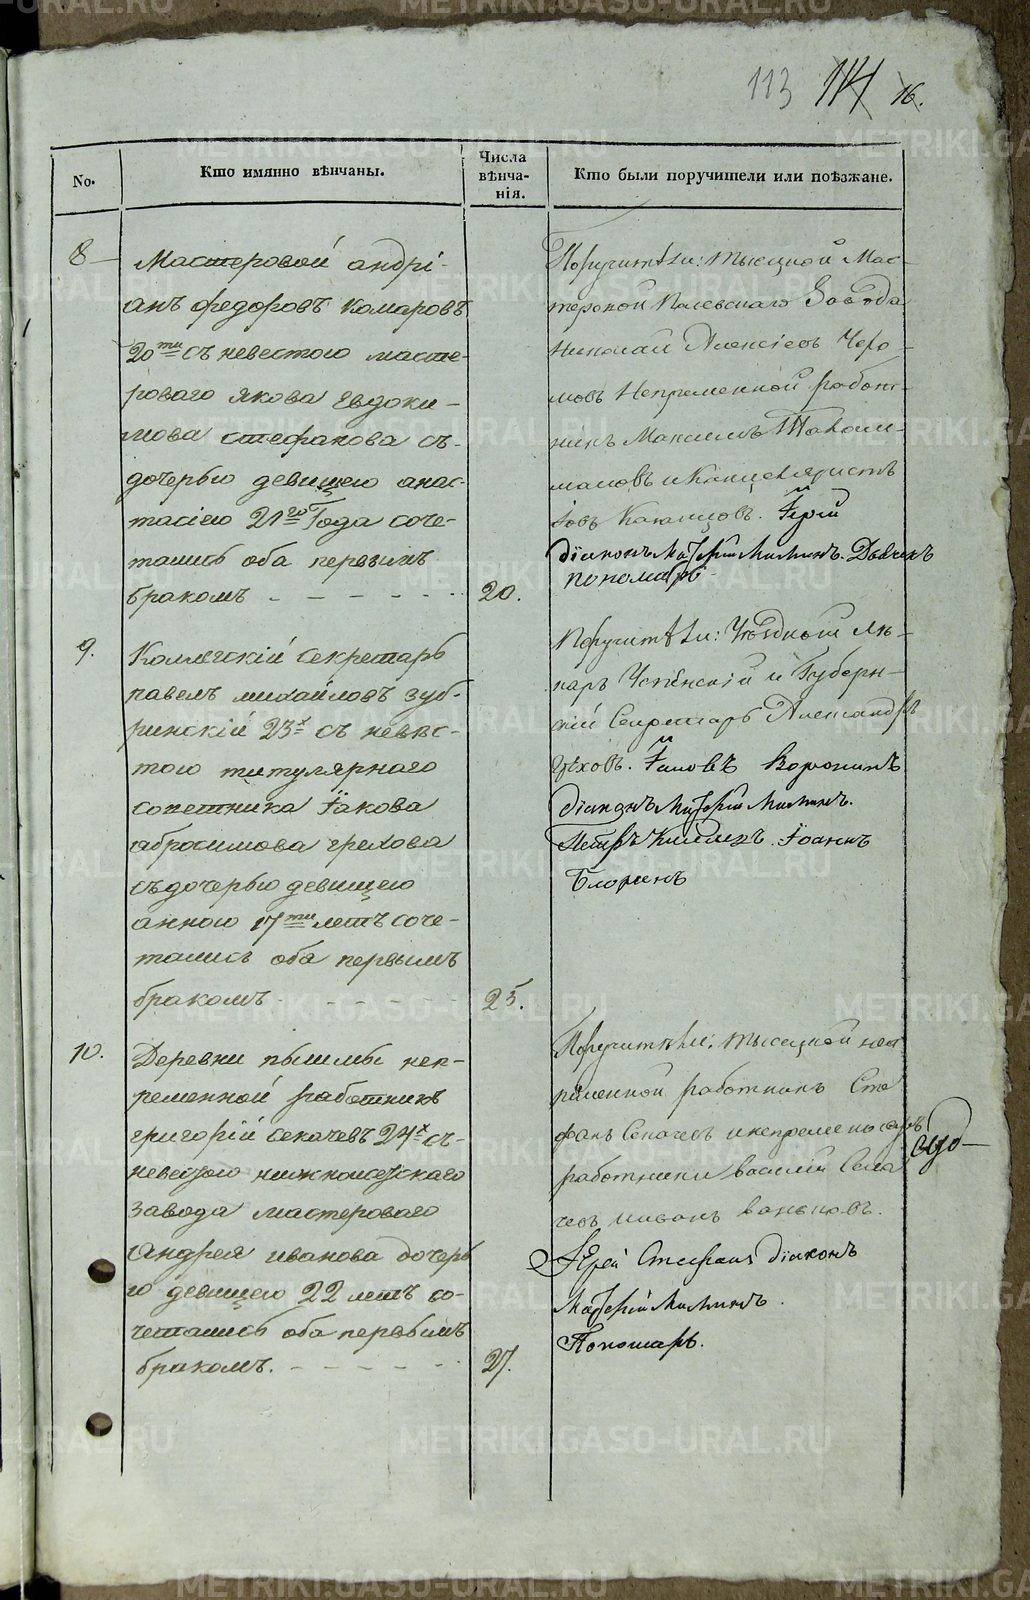 113 114 16.
No.
Кто имянно вѣнчаны.
Числа
вѣнча-
нія.
Кто были поручители или поѣзжане.
8
Мастеровой андрі-
анъ федоровъ комаровъ
20ти съ невестою масте-
роваго якова Евдоки-
мова стефанова съ
дочерью девицею анас-
тасіею 21го года соче-
тались оба первымъ
бракомъ
20.
Поручители: тысяцкой Мас-
теровой Полевскаго Завода
Николай Алексіевъ
Непременной работ-
никъ Максимъ
и Канцеляристъ
Іовъ
діаконъ Матфей
пономарь
9.
Коллегскій секретарь
павелъ михайловъ зуб-
ринскій 23х съ невес-
тою титулярнаго
советника Іакова
абросимова грехова
съ дочерью девицею
анною 17ти летъ соче-
тались оба первымъ
бракомъ
25.
Поручители: Уѣздный лѣ-
карь Успенскій и Губерн-
скій Секретарь Александръ
Грѣховъ. Іаковъ Воронинъ
діаконъ
Петръ Іоаннъ
10.
Деревни пышмы неп-
ременной работникъ
григорій секачевъ 24х съ
невестою нижноисетскаго
завода мастероваго
Андрея иванова дочерь
ю девицею 22 летъ со-
четались оба первымъ
бракомъ.
27.
Поручители: тысяцкой неп
ременной работникъ Сте
фанъ Секачевъ и непременные
работники василій Сека
чевъ иванъ ваньковъ.
Іерей Стефанъ діаконъ
Пономарь.
METRIKI.GASO-URAL.RU